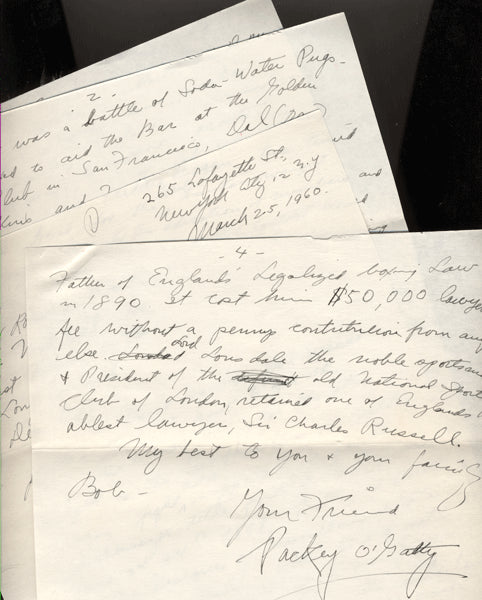 - 2 -
was a battle of Soda-Water Pugs -
to aid the Bar at the Golden
Club in San Francisco,
and
265 Lafayette St.,
New York City 12 N.Y
March 25, 1960.
- 4 -
Father of Englands' Legalized boxing Law
in 1890. It cost him $50,000 lawyer
fee without a penny contribution from any
else. Lord Lonsdale the noble sportsman
& President of the old National Sport
Club of London, retained one of Englands
ablest lawyer, Sir Charles Russell.
My best to you & your family
Bob -
Your Friend
Packey O'Gatty